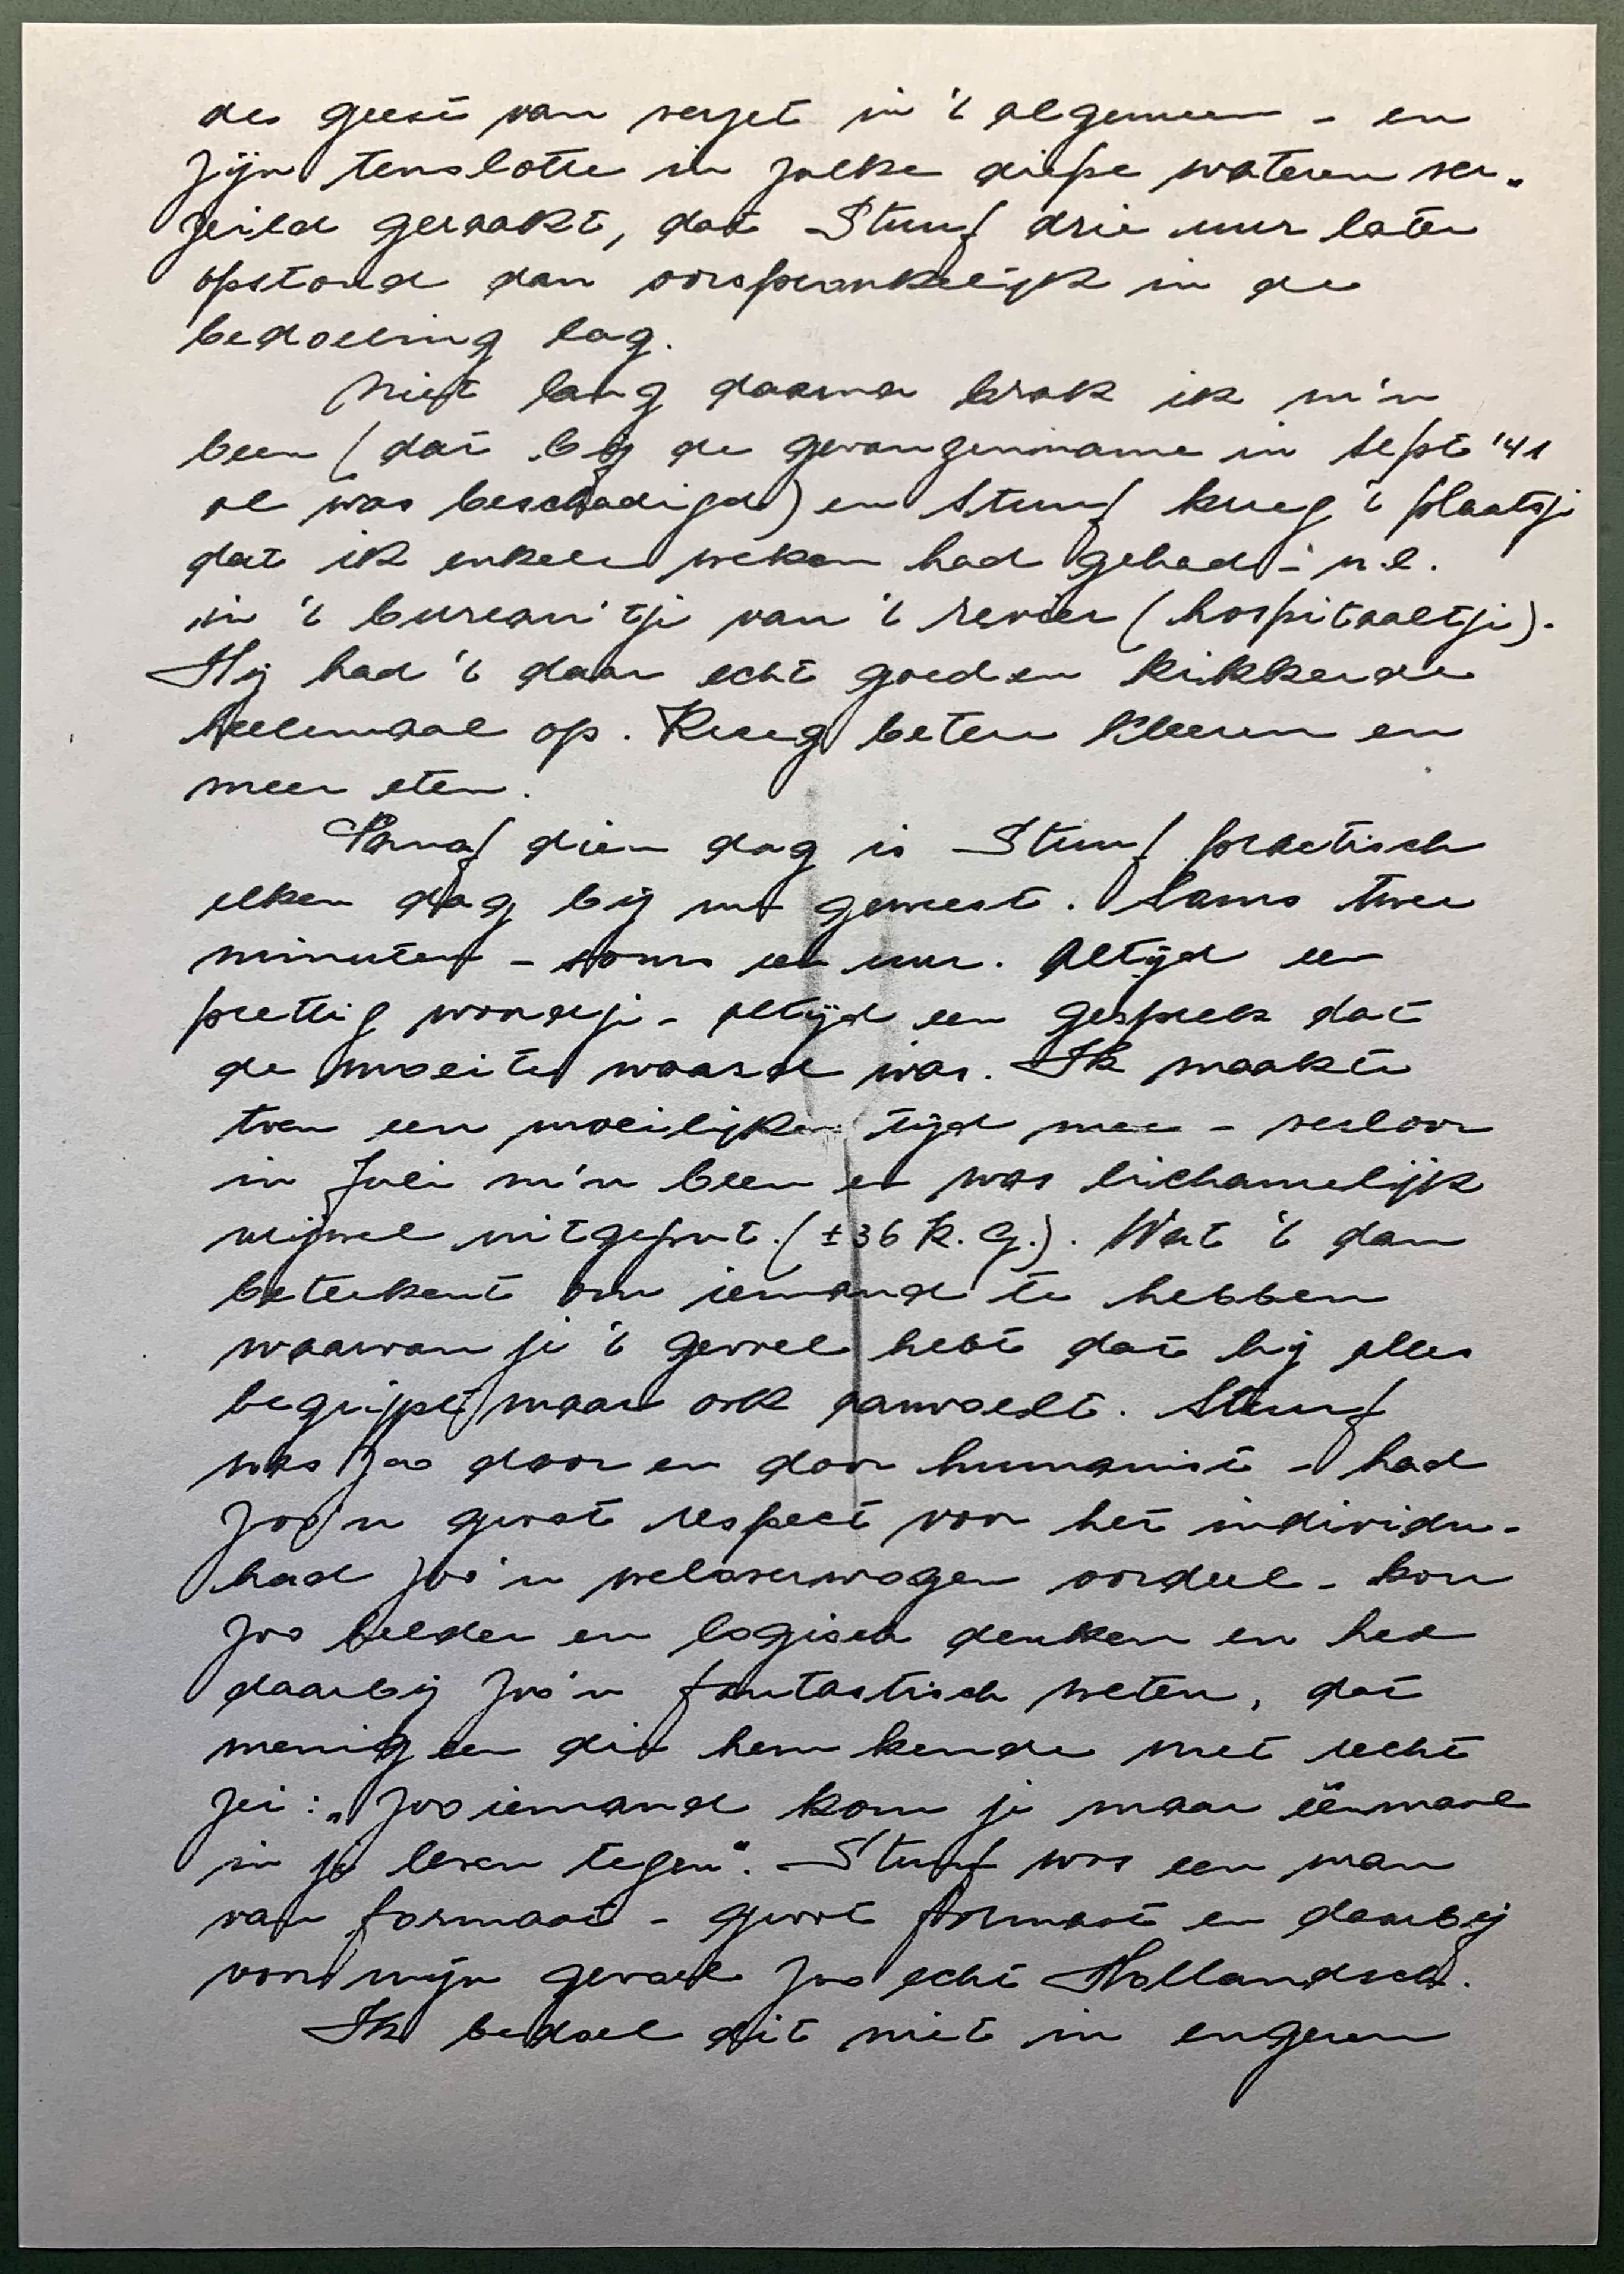 de geest van verzet in 't algemeen - en
zijn tenslotte in zulke diepe wateren ver„
zeild geraakt, dat Stuuf drie uur later
opstond dan oorspronkelijk in de
bedoeling lag.
Niet lang daarna brak ik m'n
been (dat bij de gevangenname in Sept '41
al was beschadigd) en Stuuf kreeg 't plaatsje
dat ik enkele weken had gehad - n.l.
in 't bureau'tje van 't revier (hospitaaltje).
Hij had 't daar echt goed en kikkerde
heelemaal op. Kreeg betere kleeren en
meer eten.
Vanaf dien dag is Stuuf practisch
elken dag bij me geweest. Soms twee
minuten - soms een uur. Altijd een
prettig woordje - altijd een gesprek dat
de moeite waard was. Ik maakte
toen een moeilijken tijd mee - verloor
in Juli m'n been en was lichamelijk
vrijwel uitgeput. (± 36 K.G.). Wat 't dan
beteekent om iemand te hebben
waarvan je 't gevoel hebt dat hij alles
begrijpt maar ook aanvoelt. Stuuf
was zoo door en door humanist - had
zoo'n groot respect voor het individu -
had zoo'n weloverwogen oordeel - kon
zoo helder en logisch denken en had
daarbij zoo'n fantastisch weten, dat
menigeen die hem kende met recht
zei: „Zoo iemand kom je maar éénmaal
in je leven tegen". Stuuf was een man
van formaat - groot formaat en daarbij
voor mijn gevoel zoo echt Hollandsch.
Ik bedoel dit niet in engeren